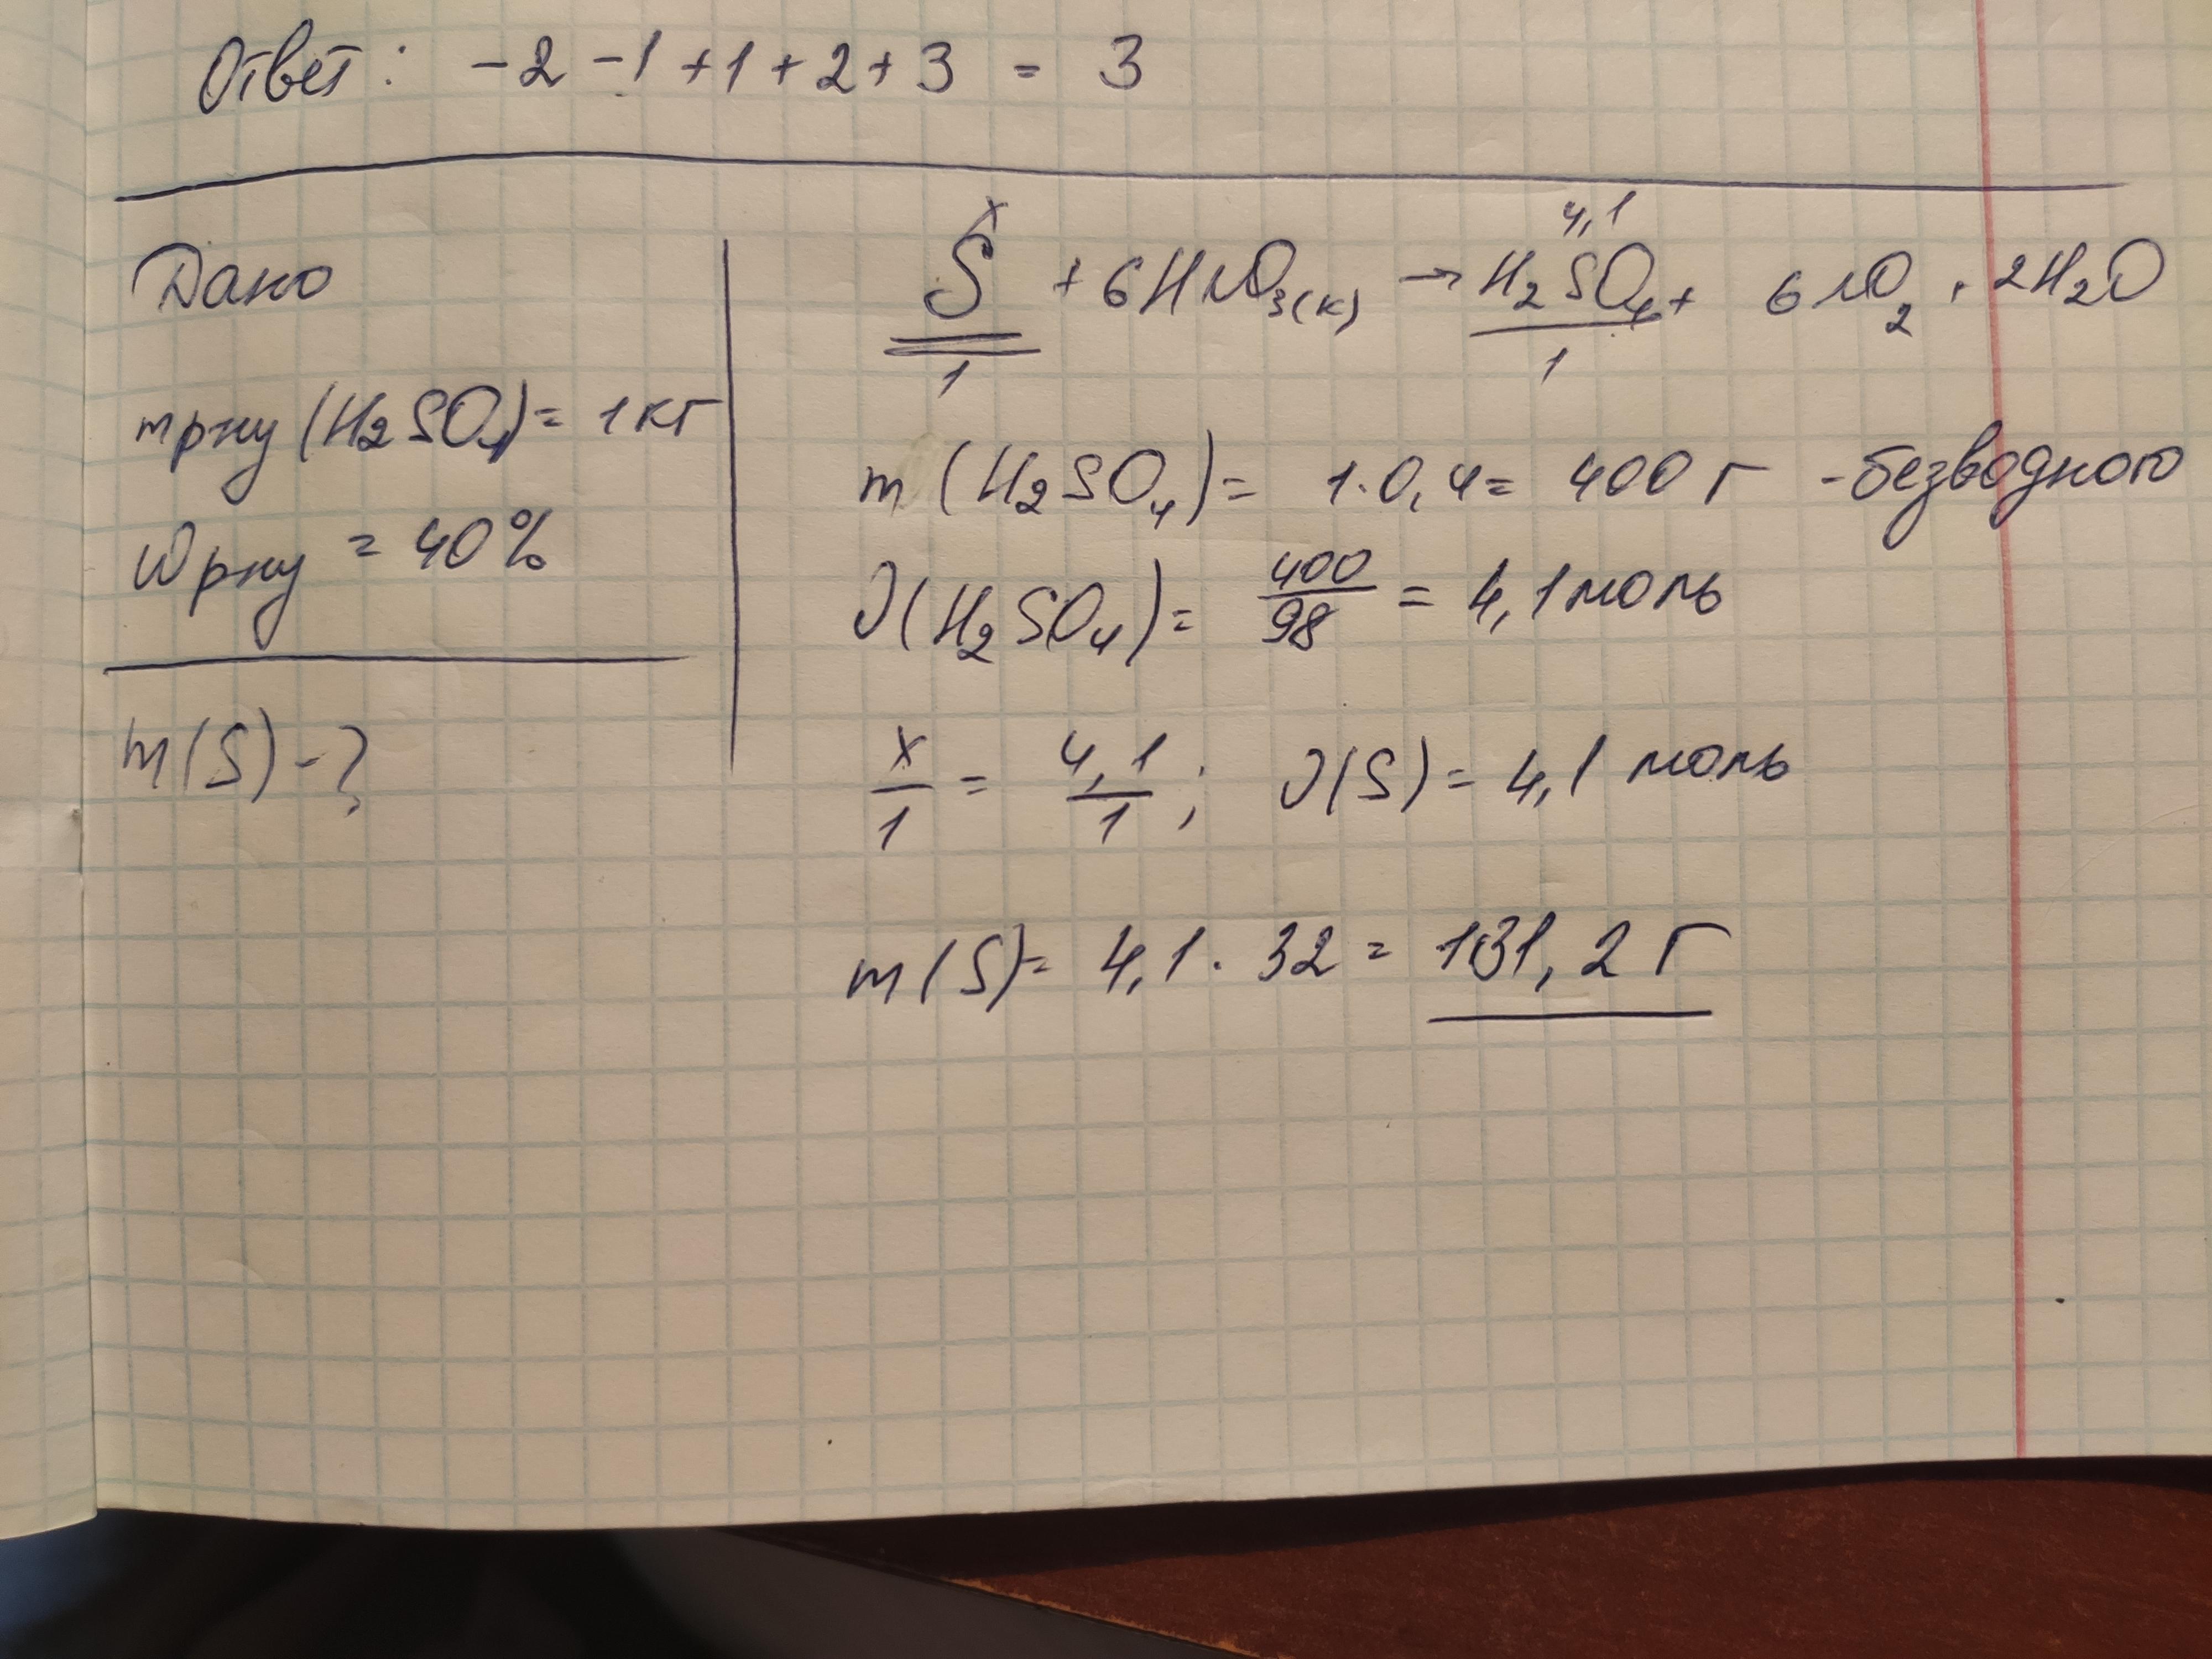 Ответ: -2 -1 +1 +2 +3 = 3
Дано
mр-ну (H₂SO₄) = 1 кг
Wр-ну = 40%
m(S) - ?
x 4,1
S + 6HNO₃(к) → H₂SO₄ + 6NO₂ + 2H₂O
1 1
m (H₂SO₄) = 1·0,4 = 400 г - безводного
ν(H₂SO₄) = 400/98 = 4,1 моль
x/1 = 4,1/1 ; ν(S) = 4,1 моль
m(S) = 4,1 · 32 = 131,2 г